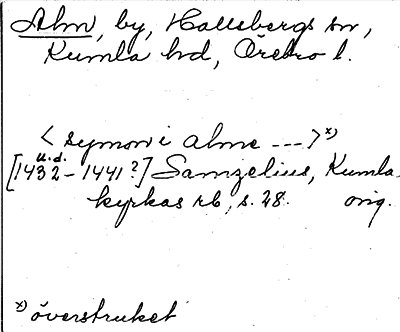 Alm, by, Hallsbergs sn,
Kumla hd, Örebro l.
< symon i alme --- > x)
u.d.
[1432 - 1441?] Samzelius, Kumla
kyrkas rb, s. 28. orig.
x) överstruket